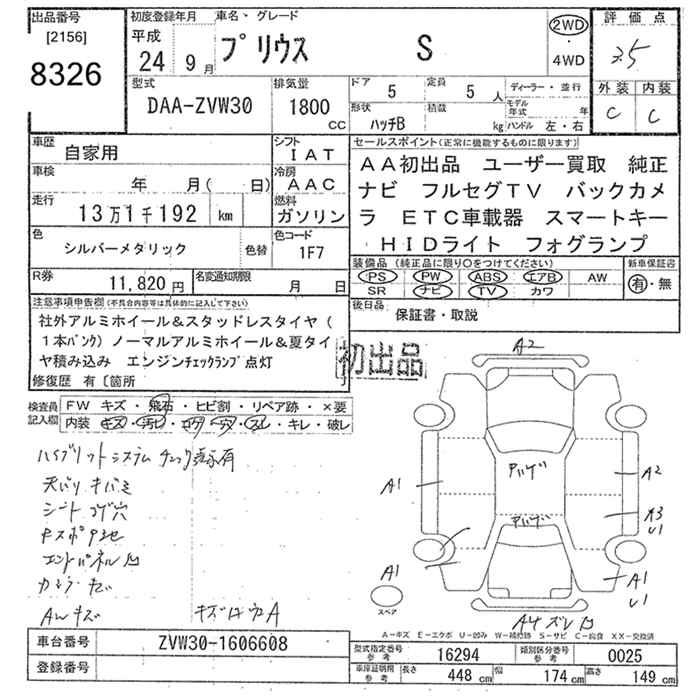 出品番号
[2156]
8326
初度登録年月
平成
24 9月
車名・グレード
プリウス S
2WD
・
4WD
評価点
3.5
外装 内装
C C
型式
DAA-ZVW30
排気量
1800
CC
ドア
5
定員
5人
形状
ハッチB
積載
kg
ディーラー・並行
モデル年式 年
ハンドル 左・右
車歴
自家用
シフト
IAT
車検
年 月( 日)
冷房
AAC
走行
13万1千192 km
燃料
ガソリン
色
シルバーメタリック
色替
色コード
1F7
R券
11,820円
名変通知期限
月 日
セールスポイント(正常に機能するものに限ります)
AA初出品 ユーザー買取 純正
ナビ フルセグTV バックカメ
ラ ETC車載器 スマートキー
HIDライト フォグランプ
装備品(純正品に限り○をつけてください)
PS PW ABS エアB AW
SR ナビ TV カワ
新車保証書
有・無
後日品
保証書・取説
注意事項申告欄(不具合内容等は具体的に記入して下さい)
社外アルミホイール&スタッドレスタイヤ(
1本パンク)ノーマルアルミホイール&夏タイ
ヤ積み込み エンジンチェックランプ点灯
修復歴 有〔箇所 〕
初出品
検査員記入欄
FW キズ・飛石・ヒビ割・リペア跡・×要
内装 キズ・汚レ・コゲ・穴・スレ・キレ・破レ
ハイブリットシステム チェック表示有
天バリ キバミ
シート コゲ穴
エンドパネル凹
AWキズ
A2
A1
A2
A3
U1
A1
A1
U1
スペア
A-キズ E-エクボ U-凹み W-補修跡 S-サビ C-腐食 XX-交換済
車台番号
ZVW30-1606608
登録番号
型式指定番号
参考
16294
類別区分番号
参考
0025
車庫証明用
参考
長さ 448 cm
幅 174 cm
高さ 149 cm